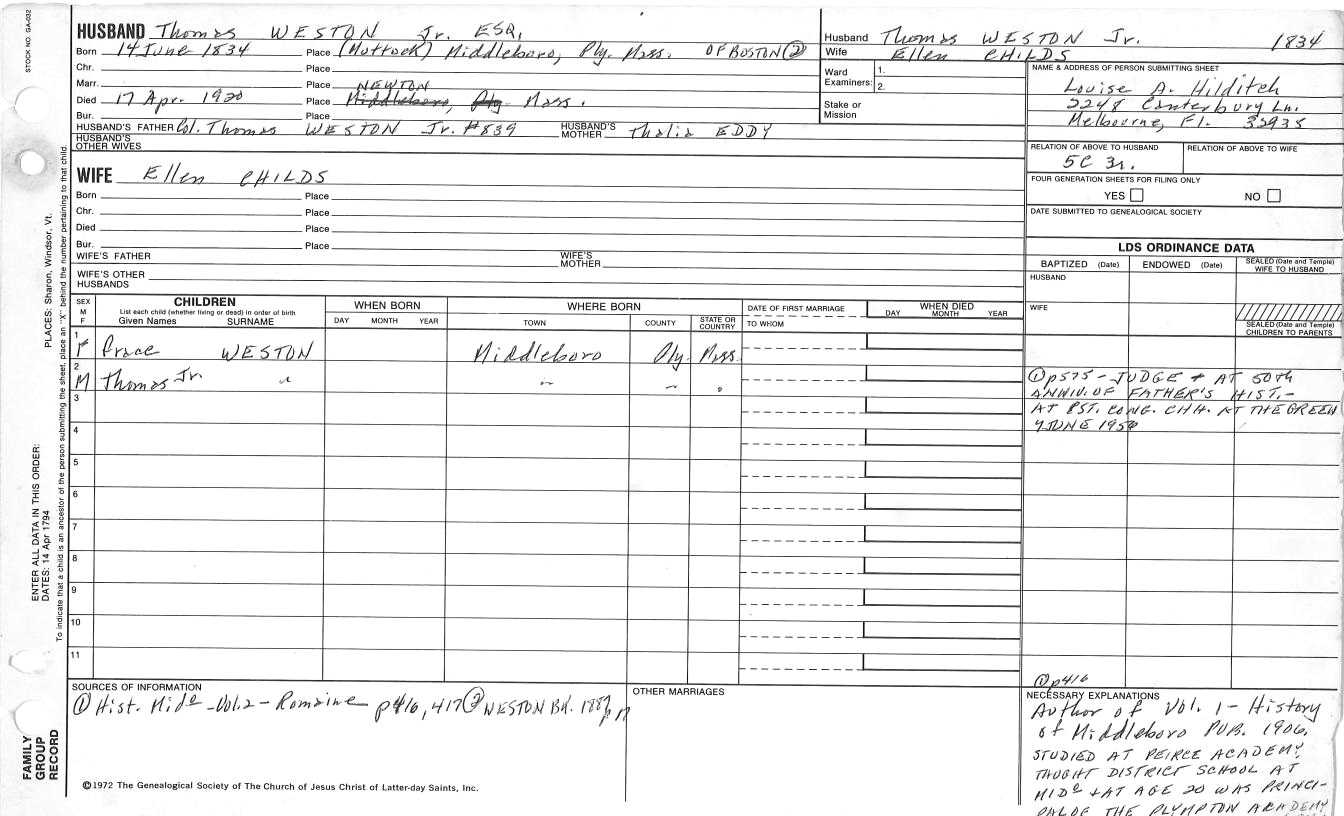 STOCK NO. GA-032
HUSBAND Thomas WESTON Jr. ESQ.
Born 14 June 1834 Place (Muttock) Middleboro, Ply. Mass. OF BOSTON ②
Chr. Place
Marr. Place NEWTON
Died 17 Apr. 1920 Place Middleboro, Ply Mass.
Bur. Place
HUSBAND'S FATHER Col. Thomas WESTON Jr. #839 HUSBAND'S MOTHER Thalia EDDY
HUSBAND'S OTHER WIVES
Husband Thomas WESTON Jr. 1834
Wife Ellen CHILDS
Ward Examiners: 1.
2.
Stake or Mission
NAME & ADDRESS OF PERSON SUBMITTING SHEET
Louise A. Hilditch
2248 Canterbury Ln.
Melbourne, Fl. 32935
RELATION OF ABOVE TO HUSBAND RELATION OF ABOVE TO WIFE
5C 3r.
FOUR GENERATION SHEETS FOR FILING ONLY
YES NO
DATE SUBMITTED TO GENEALOGICAL SOCIETY
WIFE Ellen CHILDS
Born Place
Chr. Place
Died Place
Bur. Place
WIFE'S FATHER WIFE'S MOTHER
WIFE'S OTHER HUSBANDS
LDS ORDINANCE DATA
BAPTIZED (Date) ENDOWED (Date) SEALED (Date and Temple) WIFE TO HUSBAND
HUSBAND
WIFE
SEALED (Date and Temple) CHILDREN TO PARENTS
SEX M F CHILDREN WHEN BORN WHERE BORN DATE OF FIRST MARRIAGE WHEN DIED
List each child (whether living or dead) in order of birth
Given Names SURNAME DAY MONTH YEAR TOWN COUNTY STATE OR COUNTRY TO WHOM DAY MONTH YEAR
1 F Grace WESTON Middleboro Ply. Mass.
2 M Thomas Jr. " " " "
3
4
5
6
7
8
9
10
11
① p575 - JUDGE + AT 50th
ANNIV. OF FATHER'S HIST. -
AT 1ST. CONG. CHH. AT THE GREEN
JUNE
① p416
SOURCES OF INFORMATION
① Hist. Mido - Vol. 2 - Romaine p416, 417 ② WESTON BK. 1887
OTHER MARRIAGES
NECESSARY EXPLANATIONS
Author of Vol. 1 - History
of Middleboro PUB. 1906.
STUDIED AT PEIRCE ACADEMY,
TAUGHT DISTRICT SCHOOL AT
MIDo + AT AGE 20 WAS PRINCI-
PAL OF THE PLYMPTON ACADEMY
©1972 The Genealogical Society of The Church of Jesus Christ of Latter-day Saints, Inc.
FAMILY GROUP RECORD
ENTER ALL DATA IN THIS ORDER:
DATES: 14 Apr 1794 PLACES: Sharon, Windsor, Vt.
To indicate that a child is an ancestor of the person submitting the sheet, place an "X" behind the number pertaining to that child.